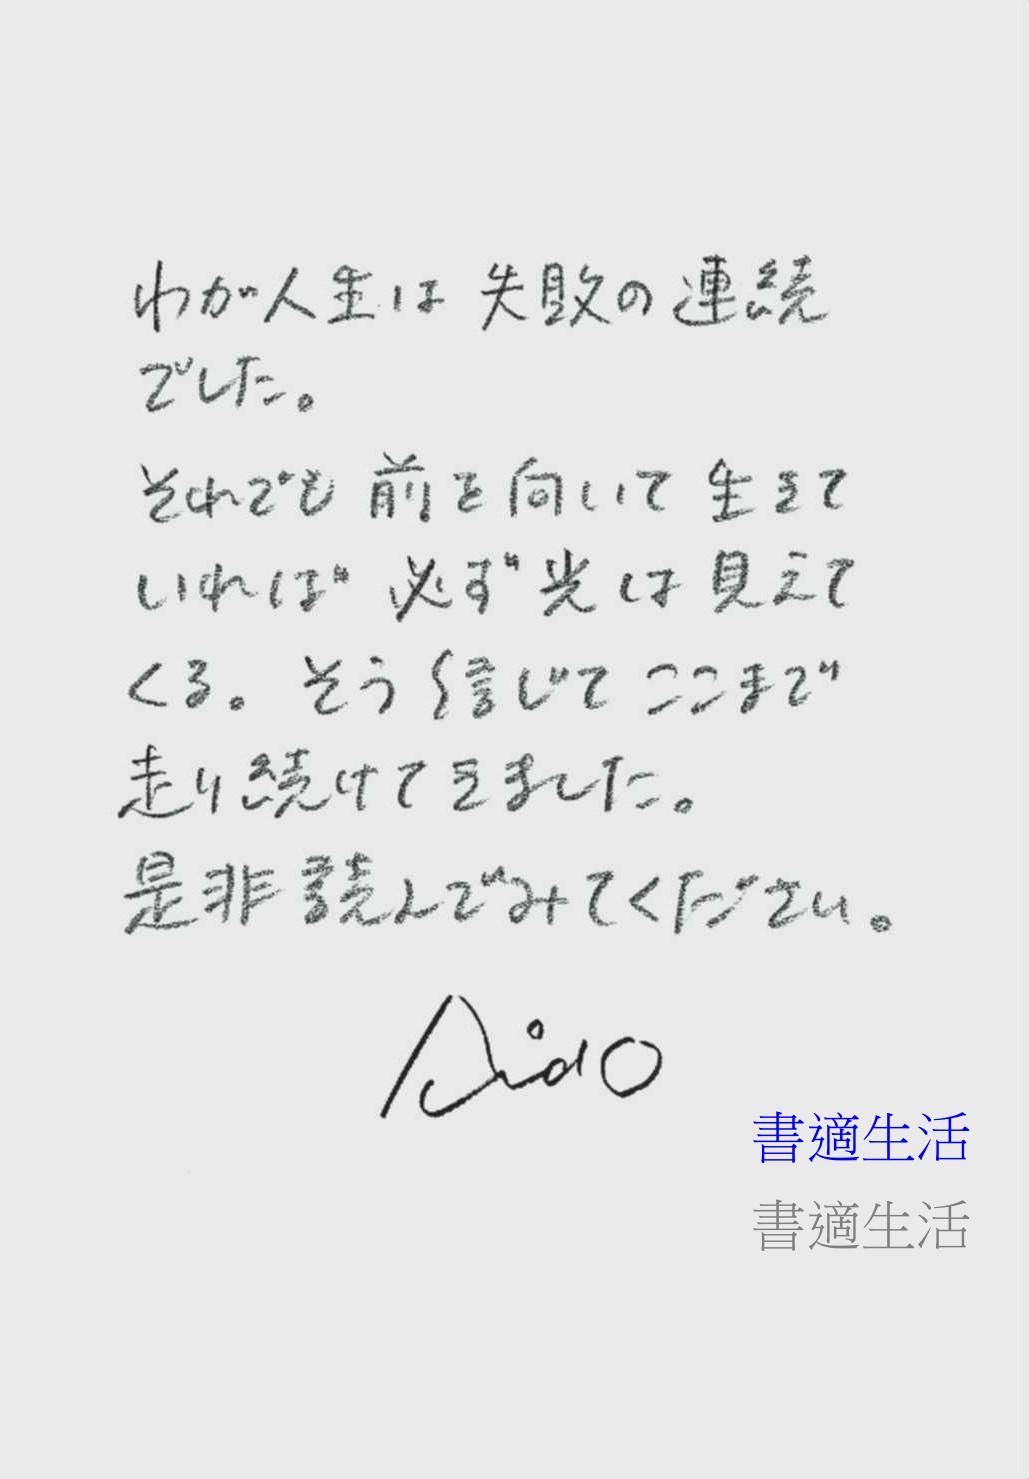 わが人生は失敗の連続
でした。
それでも前を向いて生きて
いれば必ず光は見えて
くる。そう信じてここまで
走り続けてきました。
是非読んでみてください。
書適生活
書適生活